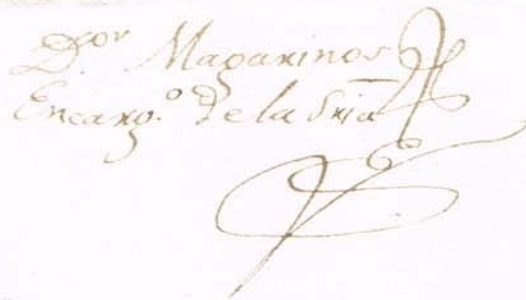 Dor Magarinos
Encargo. de la Sria